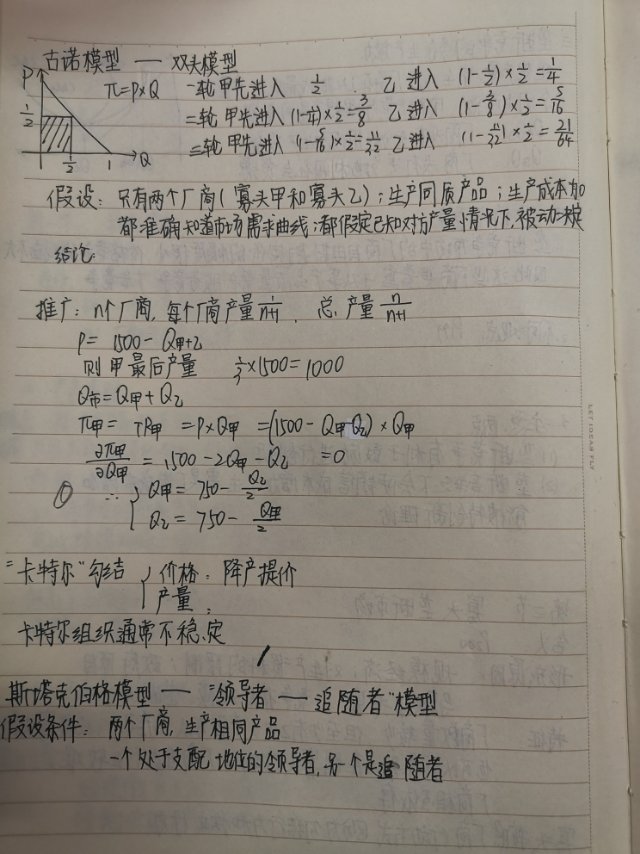 古诺模型 — 双头模型
P
π=P×Q 一轮 甲先进入 1/2 乙进入 (1-1/2)×1/2=1/4
1/2 二轮 甲先进入 (1-1/4)×1/2=3/8 乙进入 (1-3/8)×1/2=5/16
三轮 甲先进入 (1-5/16)×1/2=11/32 乙进入 (1-11/32)×1/2=21/64
1/2 1 Q
假设: 只有两个厂商(寡头甲和寡头乙);生产同质产品;生产成本为
都准确知道市场需求曲线;都假定已知对方产量情况下,被动决定
结论:
推广: n个厂商,每个厂商产量 1/n+1 . 总产量 n/n+1
P= 1500-Q甲+乙
则 甲最后产量 1/3×1500=1000
Q市=Q甲+Q乙
π甲= TR甲 =P×Q甲 =(1500-Q甲-Q乙)×Q甲
∂π甲/∂Q甲 = 1500-2Q甲-Q乙 =0
① ∴ { Q甲=750-Q乙/2
Q乙=750-Q甲/2
"卡特尔"勾结 { 价格: 降产提价
产量:
卡特尔组织通常不稳定
斯塔克伯格模型 — "领导者 — 追随者"模型
假设条件: 两个厂商,生产相同产品
一个处于支配地位的领导者,另一个是追随者